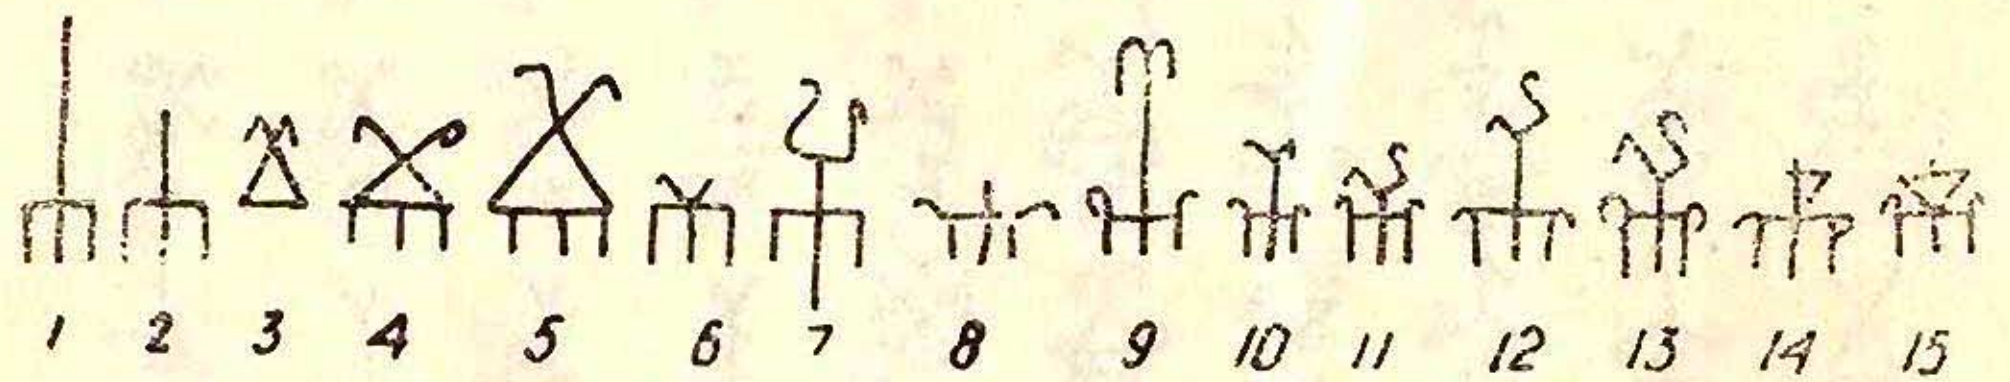 1 2 3 4 5 6 7 8 9 10 11 12 13 14 15